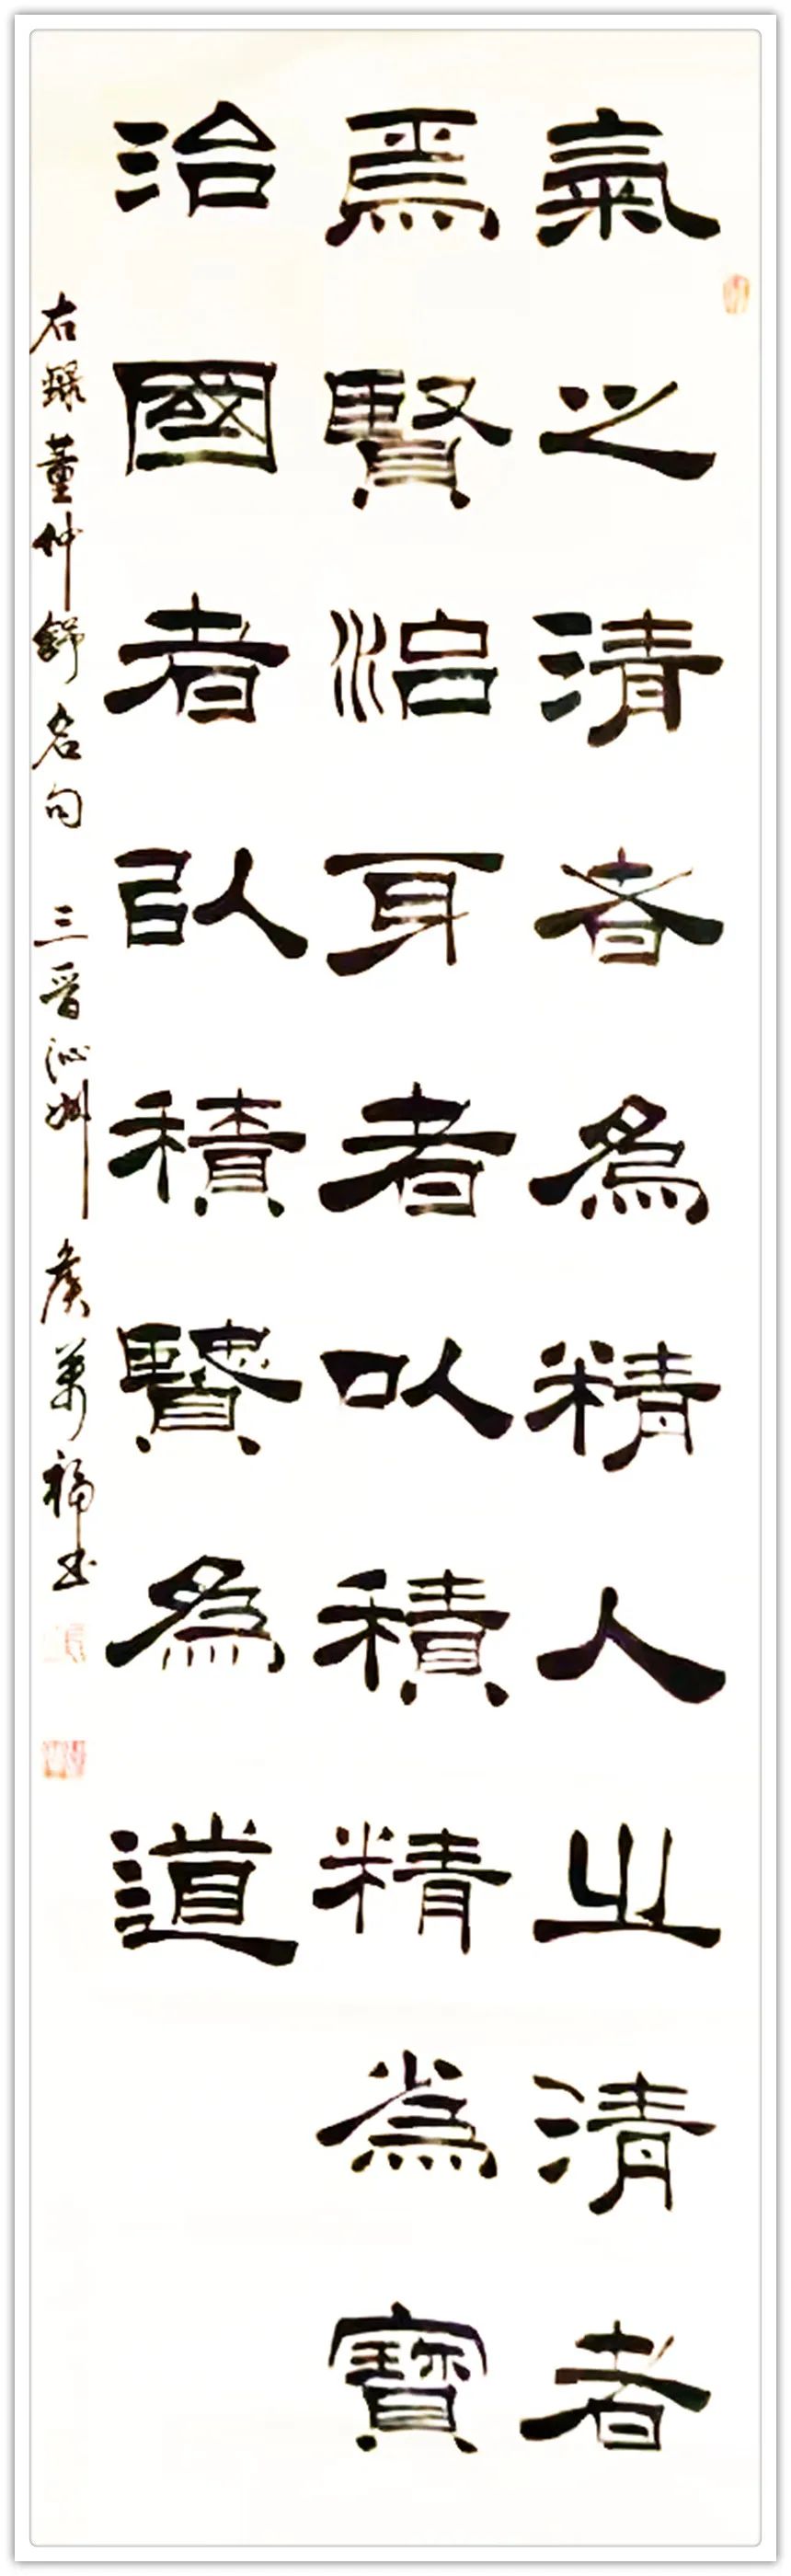 氣之清者為精人之清者
焉賢治身者以積精為寶
治國者以積賢為道
右錄董仲舒名句 三晋沁州 萬福书